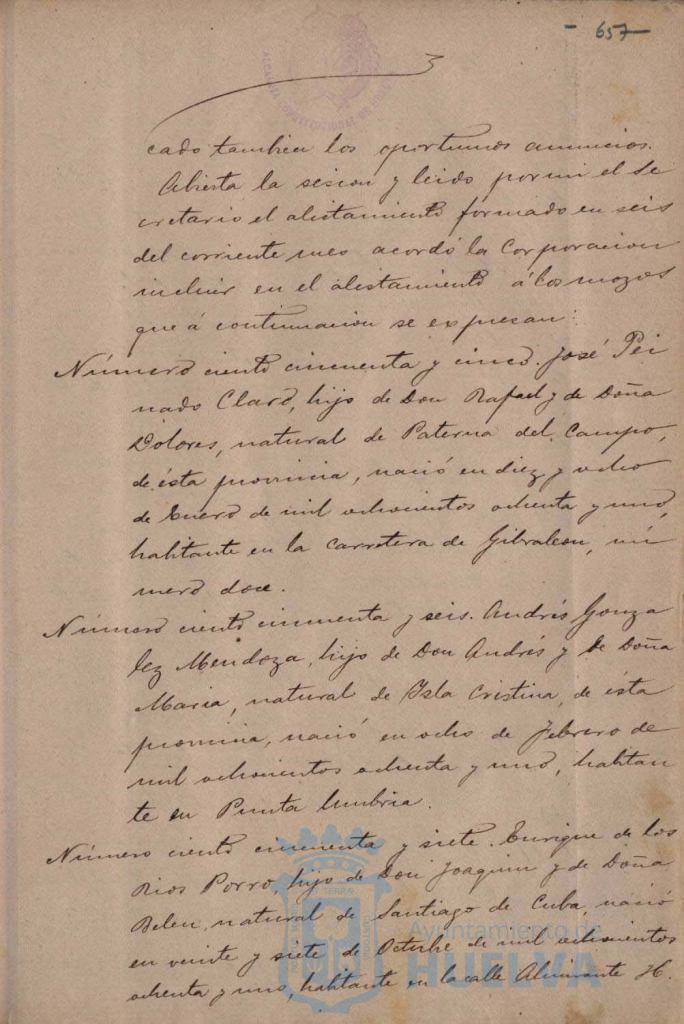 - 657 -
3
cado tambien los oportunos anuncios.
Abierta la sesion y leido por mi el Se
cretario el alistamiento formado en seis
del corriente mes acordó la Corporacion
incluir en el alistamiento á los mozos
que á continuacion se expresan:
Número ciento cincuenta y cinco. José Pei
nado Claro, hijo de Don Rafael y de Doña
Dolores, natural de Paterna del Campo,
de ésta provincia, nació en diez y ocho
de Enero de mil ochocientos ochenta y uno,
habitante en la carretera de Gibraleon, nú
mero doce.
Número ciento cincuenta y seis. Andrés Gonza
lez Mendoza, hijo de Don Andrés y de Doña
Maria, natural de Isla Cristina, de ésta
provincia, nació en ocho de Febrero de
mil ochocientos ochenta y uno, habitan
te en Punta Umbria.
Número ciento cincuenta y siete. Enrique de los
Rios Porro, hijo de Don Joaquin y de Doña
Belen, natural de Santiago de Cuba, nació
en veinte y siete de Octubre de mil ochocientos
ochenta y uno, habitante en la calle Almirante H.
Ayuntamiento de
HUELVA